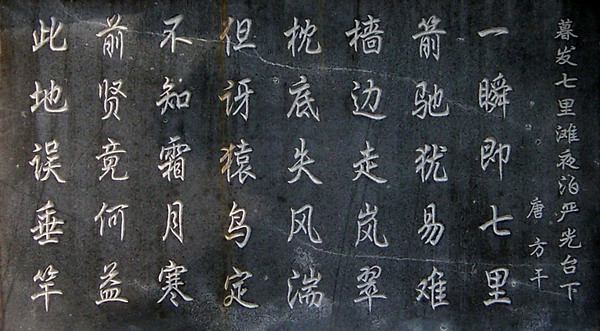 暮发七里滩夜泊严光台下
唐 方干
一瞬即七里
箭驰犹易难
樯边走岚翠
枕底失风湍
但讶猿鸟定
不知霜月寒
前贤竟何益
此地误垂竿